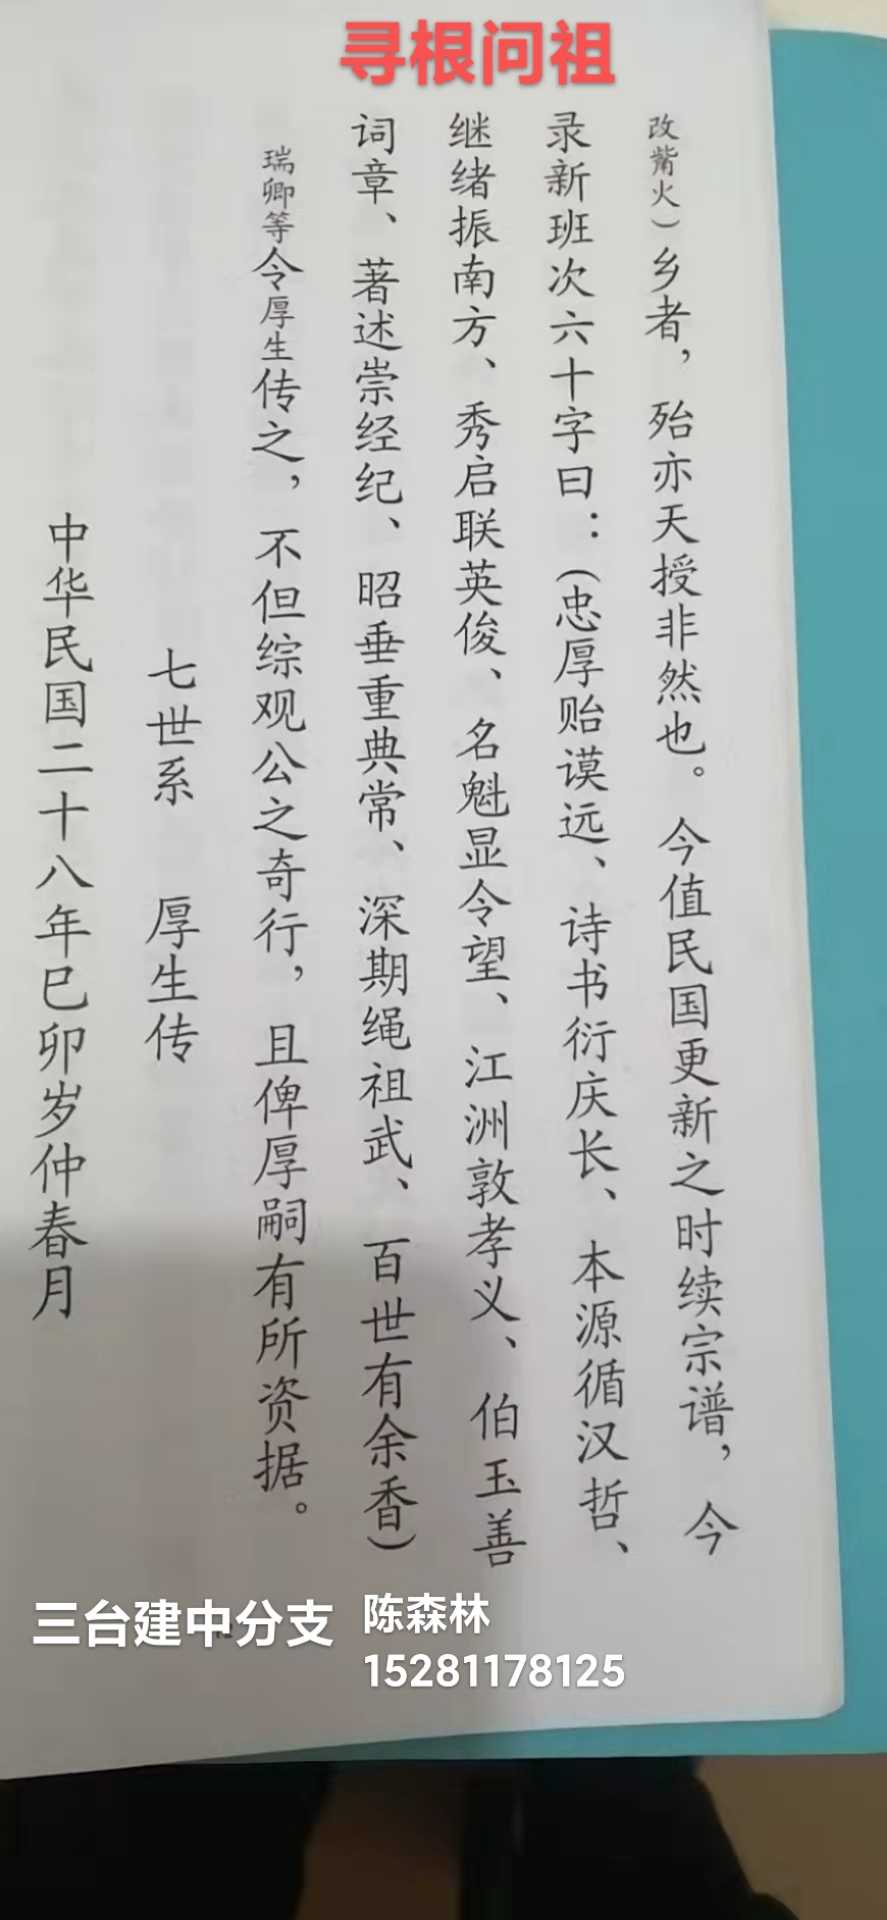 寻根问祖
改觜火）乡者，殆亦天授非然也。今值民国更新之时续宗谱，今
录新班次六十字曰：（忠厚贻谟远、诗书衍庆长、本源循汉哲、
继绪振南方、秀启联英俊、名魁显令望、江洲敦孝义、伯玉善
词章、著述崇经纪、昭垂重典常、深期绳祖武、百世有余香）
瑞卿等令厚生传之，不但综观公之奇行，且俾厚嗣有所资据。
七世系 厚生传
中华民国二十八年巳卯岁仲春月
三台建中分支
陈森林
15281178125